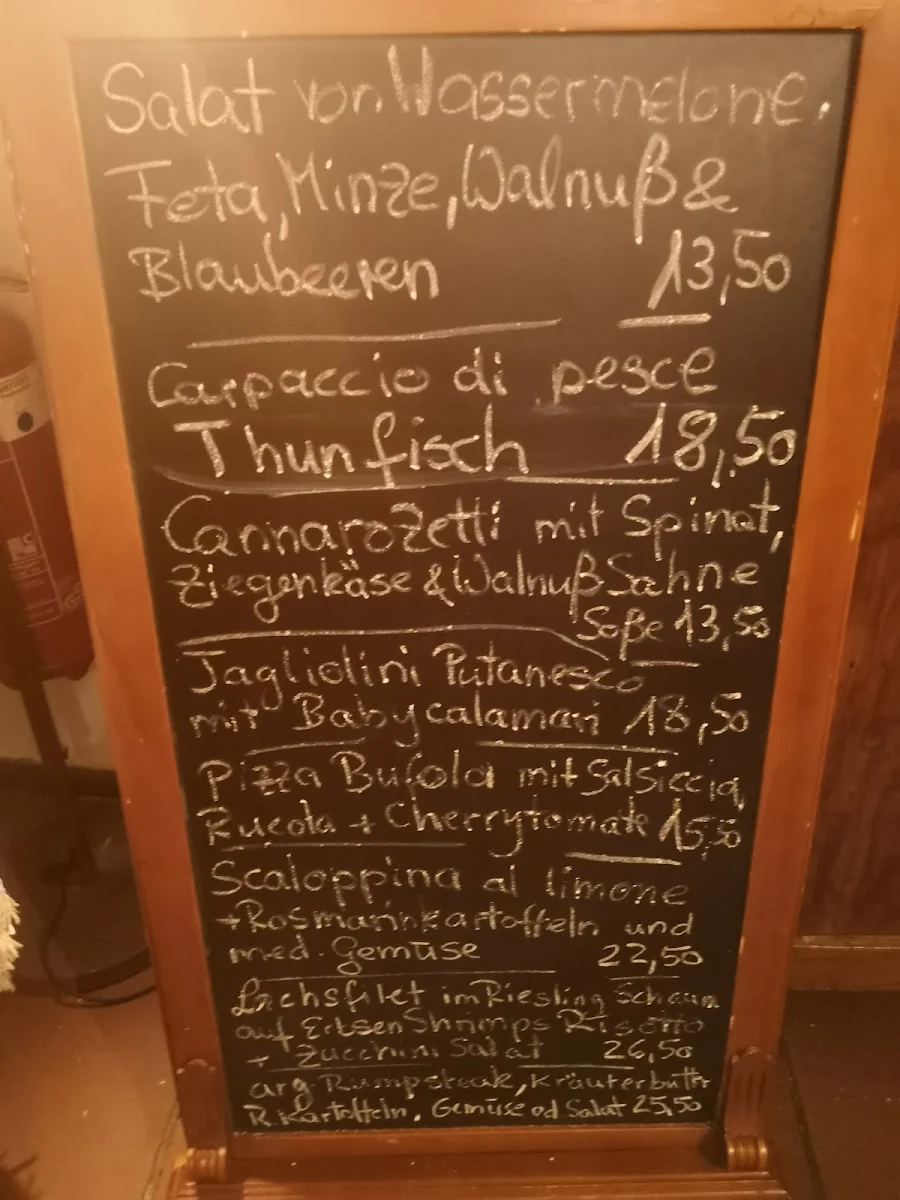 Salat von Wassermelone,
Feta, Minze, Walnuß &
Blaubeeren 13,50
Carpaccio di pesce
Thunfisch 18,50
Cannarozetti mit Spinat,
Ziegenkäse & Walnuß Sahne
Soße 13,50
Tagliolini Putanesco
mit Babycalamari 18,50
Pizza Bufola mit Salsiccia,
Rucola + Cherrytomate 15,50
Scaloppina al limone
+ Rosmarinkartoffeln und
med. Gemüse 22,50
Lachsfilet im Riesling Schaum
auf Erbsen Shrimps Risotto
+ Zucchini Salat 26,50
arg. Rumpsteak, Kräuterbutter
R. Kartoffeln, Gemüse od Salat 25,50